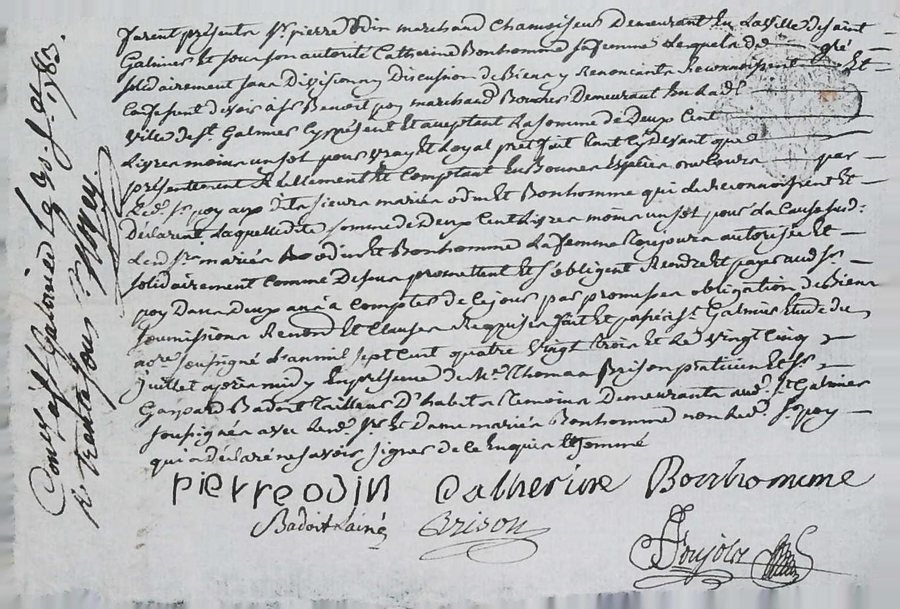 furent présents Sr. pierre Odin marchand Chamoiseur Demeurant En La Ville de saint
Galmier Et sous son autorité Catherine Bonhomme sa femme Lesquels de gré Et
solidairement sans Division ny Discusion de Biens y Renonçants Reconnoissent Et
Confessent devoir a Sr. Benoit poy marchand Boucher Demeurant En lad.
Ville de St. Galmier Cy présent Et acceptant La somme de Deux Cent
Livres moins un sol pour vray Et Loyal prêt fait tant Cy devant que
présentement Réellement Et Comptant En Bonnes Espèces par
Led. Sr. poy aux dits sieurs mariés odin Et Bonhomme qui Le reconnoissent Et
Déclarent Laquelle dite somme de Deux Cent Livres moins un sol pour La Cause sud.
Lesd. Srs. mariés odin Et Bonhomme La femme Toujours autorisée Et
solidairement Comme Dessus promettent Et s'obligent Rendre Et payer aud. Sr.
poy Dans Deux ans a Compter de Ce jour par promesses obligation de Biens
soumissions Renond. Et Clauses Requises fait Et passé a St. Galmier Etude du
nore. soussigné L'an mil sept Cent quatre vingt trois Et Le vingt Cinq
juillet après midy En présence de Me. Thomas Brison praticien Et Sr.
Gaspard Badoit Tailleur D'habits Temoins Demeurants aud. St. Galmier
soussignés avec Lesd. Srs. Et Dame mariés Bonhomme non Led. Sr. poy
qui a Déclaré ne savoir signer de ce Enquis Et sommé
PierreODIN Catherine Bonhomme
Badoit Lainé Brison
Poujols
Con. a St. Galmier Le 30 j. 1783
R. trente sous